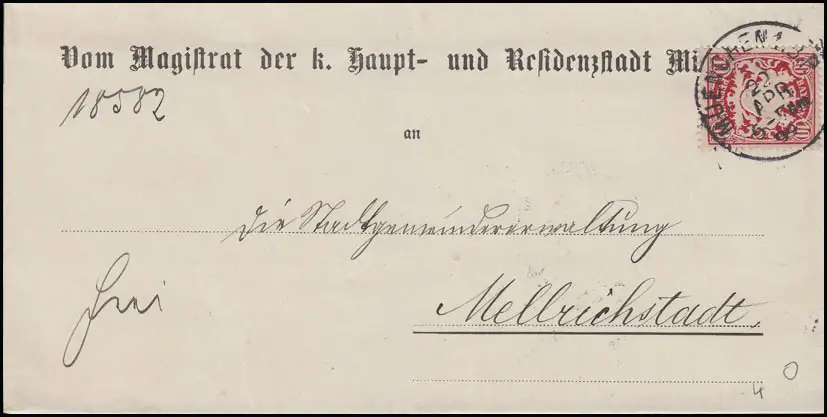 Vom Magistrat der k. Haupt- und Residenzstadt Mü
18582
an
die Stadtgemeindeverwaltung
frei
Mellrichstadt.
MUENCHEN
22
APR
10
4 0